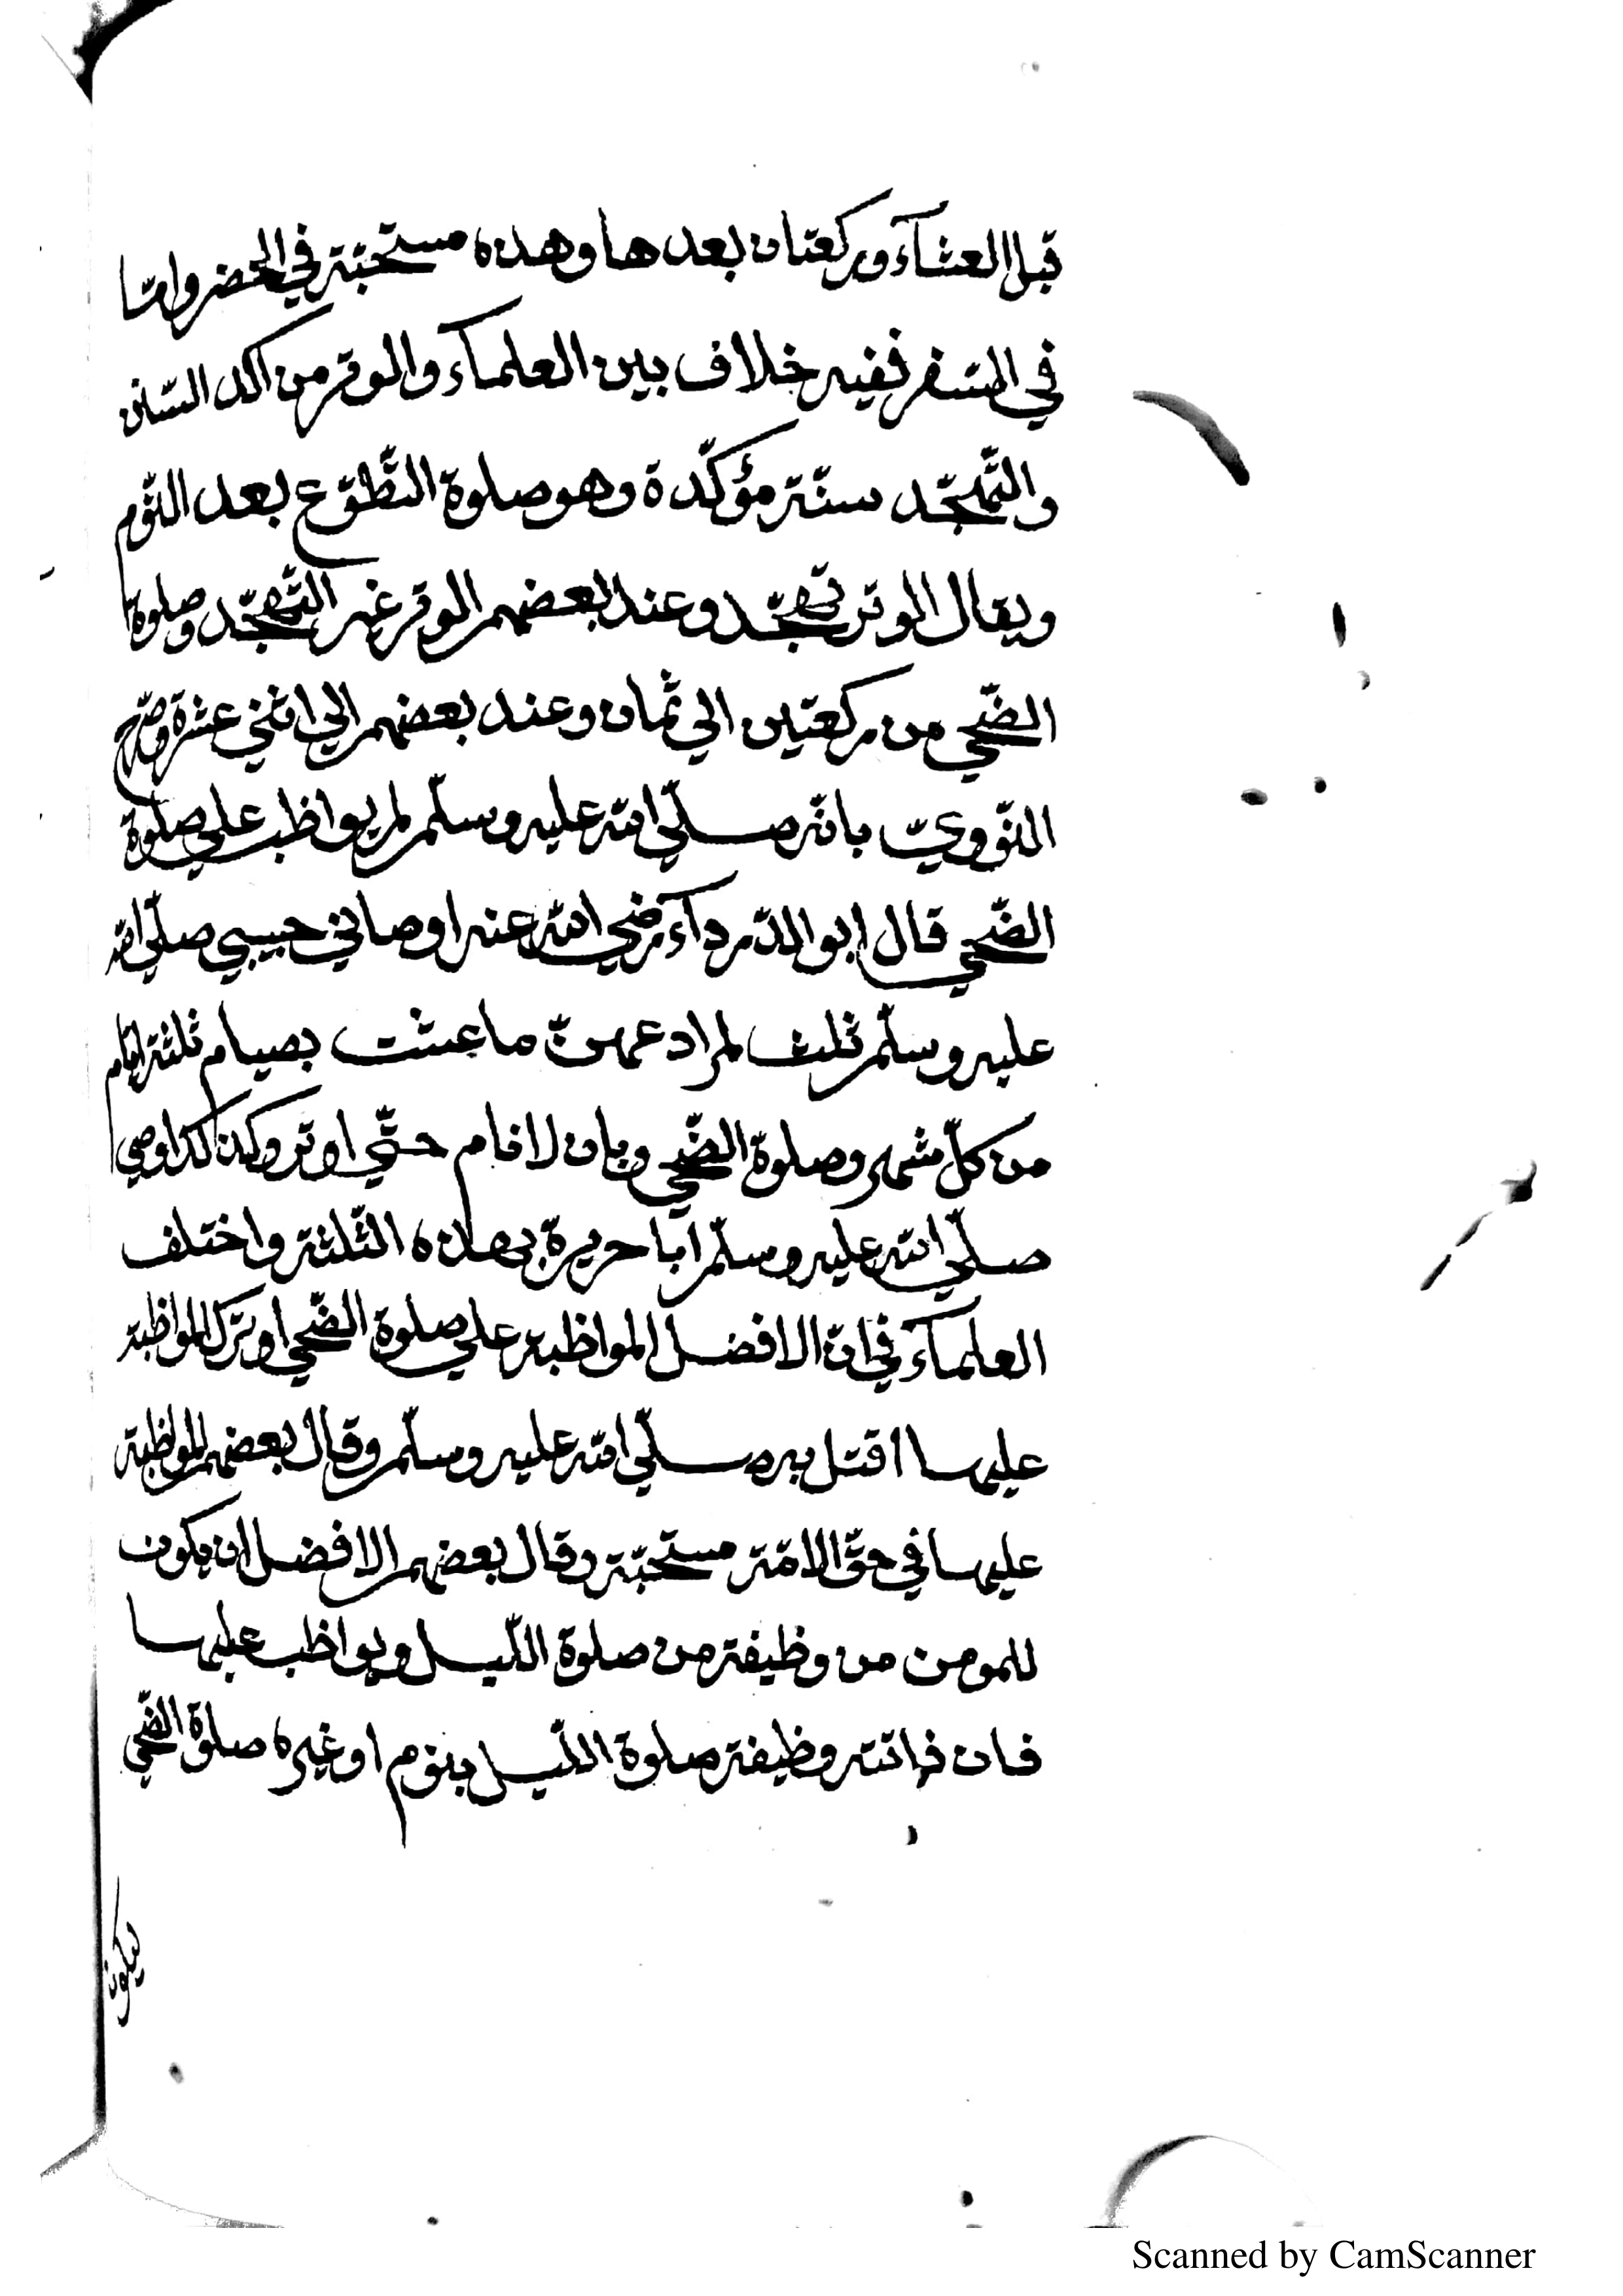 قبل العشآء وركعتان بعدها وهذه مستحبّة في الحضر وامّا
في السّفر ففيه خلاف بين العلمآء والوتر من اكد السّنن
والتّهجّد سنّة مؤكّدة وهو صلوة التّطوّع بعد النّوم
ويقال الوتر تهجّد وعند بعضهم الوتر غير التّهجّد وصلوة
الضّحي من ركعتين الي ثمان وعند بعضهم الي اثني عشرة وصرّح
النّوويّ بانّه صلّي الله عليه وسلّم لم يواظب علي صلوة
الضّحي قال ابو الدّردآء رضي الله عنه اوصاني حبيبي صلّي الله
عليه وسلّم ثلث لم ادعهنّ ما عشت بصيام ثلثة ايّام
من كلّ شهر وصلوة الضّحي وبان لا انام حتّي اوتر وكذلك اوصي
صلّي الله عليه وسلّم ابا حريرة بهذه الثّلثة واختلف
العلمآء في انّ الافضل المواظبة علي صلوة الضّحي او ترك المواظبة
عليها اقتدا به صلّي الله عليه وسلّم وقال بعضهم المواظبة
عليها في حقّ الامّة مستحبّة وقال بعضهم الافضل ان يكون
للمومن من وظيفة من صلوة اللّيل ويواظب عليها
فان فاتته وظيفة صلوة اللّيل بنوم او غيره صلوة الضّحي